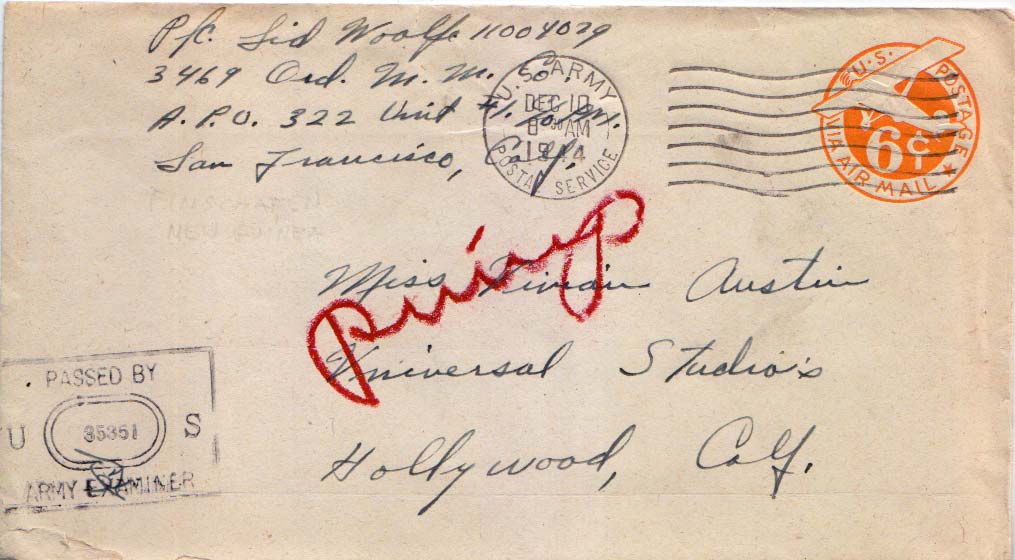 Pfc. Sid Woolfe 11004029
3469 Ord. M. M. Co.
A. P. O. 322 Unit #1. % P.M.
San Francisco, Calif.
U.S. ARMY
DEC 10
8 30 AM
1944
POSTAL SERVICE
U.S. POSTAGE
6¢
VIA AIR MAIL
NEW GUINEA
pinup
Miss Vivian Austin
Universal Studio's
Hollywood, Calif.
PASSED BY
U 35351 S
ARMY EXAMINER